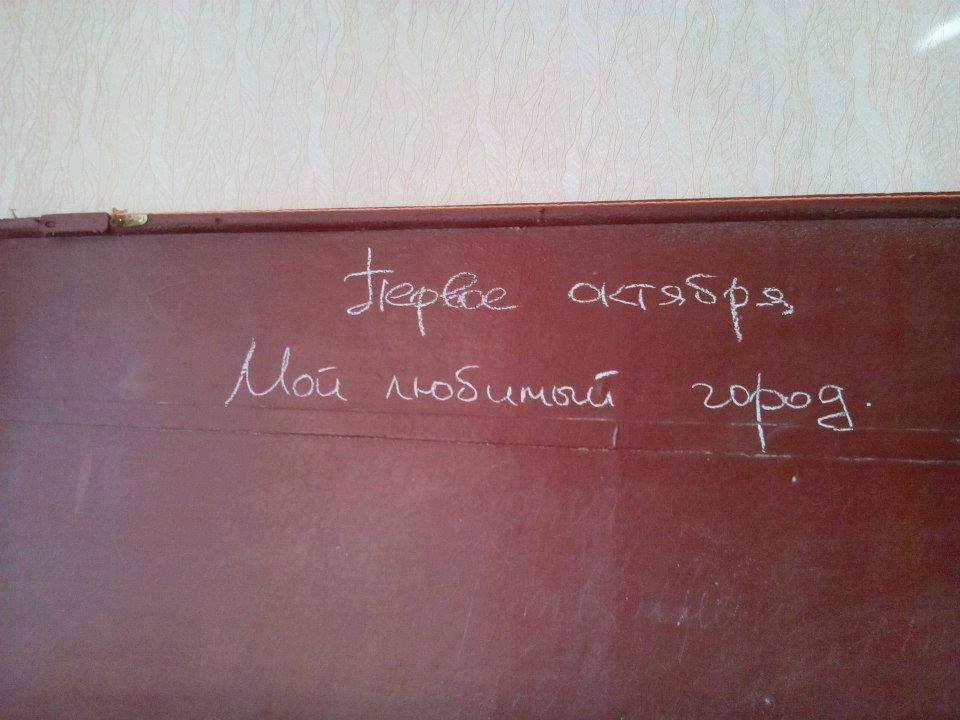 Первое октября
Мой любимый город.